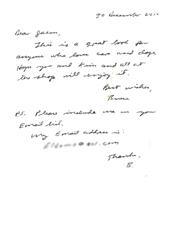 30 December 20
Dear Jason,
This is a great book for
anyone who loves cars and dogs.
Hope you and Kevin and all at
the shop will enjoy it.
Best wishes,
Bruce
P.S. Please include me in your
Email list.
My Email address is:
.com
Thanks,
B.